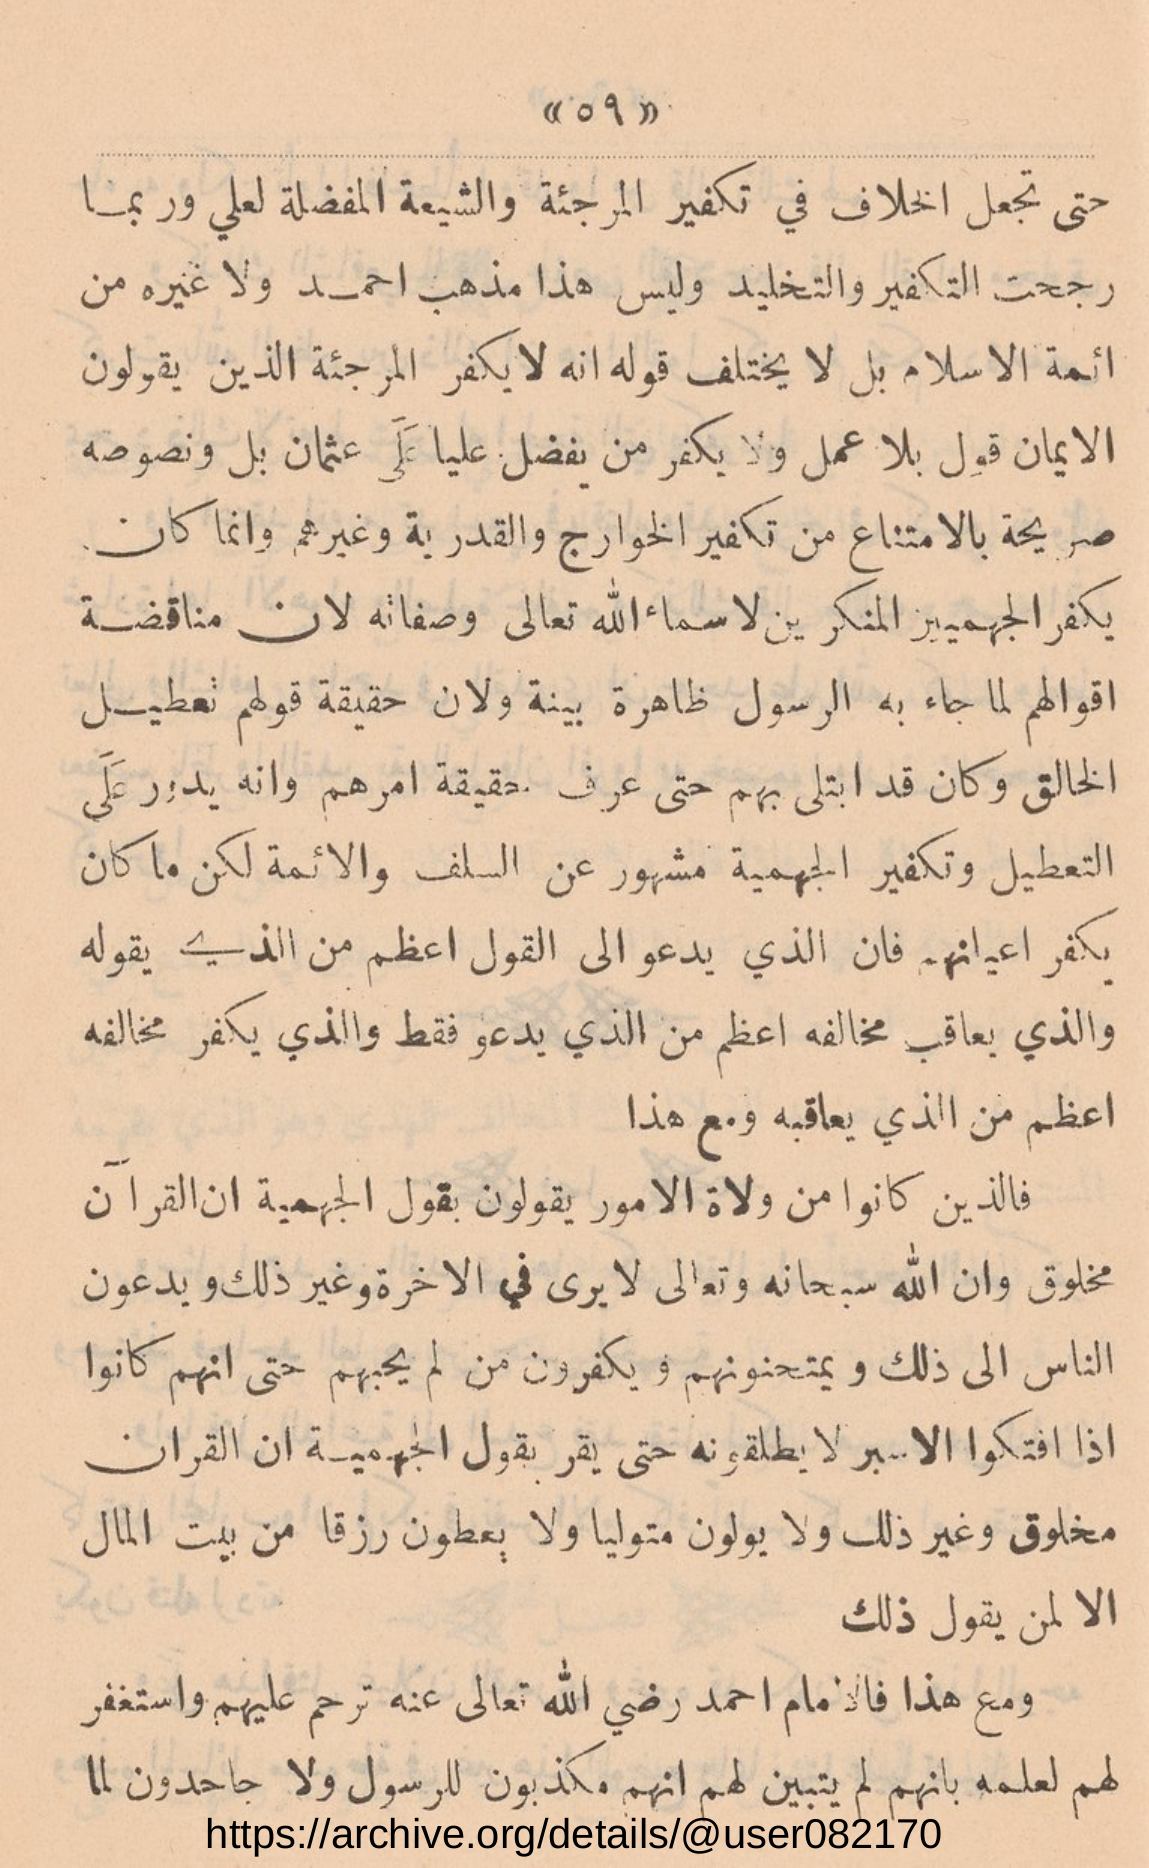 « ٥٩ »
حتى تجعل الخلاف في تكفير المرجئة والشيعة المفضلة لعلي وربما
رجحت التكفير والتخليد وليس هذا مذهب احمد ولا غيره من
ائمة الاسلام بل لا يختلف قوله انه لا يكفر المرجئة الذين يقولون
الايمان قول بلا عمل ولا يكفر من يفضل عليا عَلَى عثمان بل ونصوصه
صريحة بالامتناع من تكفير الخوارج والقدرية وغيرهم وانما كان
يكفر الجهميين المنكرين لاسماء الله تعالى وصفاته لان مناقضة
اقوالهم لما جاء به الرسول ظاهرة بينة ولان حقيقة قولهم تعطيل
الخالق وكان قد ابتلى بهم حتى عرف حقيقة امرهم وانه يدور عَلَى
التعطيل وتكفير الجهمية مشهور عن السلف والائمة لكن ما كان
يكفر اعيانهم فان الذي يدعو الى القول اعظم من الذي يقوله
والذي يعاقب مخالفه اعظم من الذي يدعو فقط والذي يكفر مخالفه
اعظم من الذي يعاقبه ومع هذا
فالذين كانوا من ولاة الامور يقولون بقول الجهمية ان القرآن
مخلوق وان الله سبحانه وتعالى لا يرى في الاخرة وغير ذلك ويدعون
الناس الى ذلك ويمتحنونهم ويكفرون من لم يجبهم حتى انهم كانوا
اذا افتكوا الاسير لا يطلقونه حتى يقر بقول الجهمية ان القران
مخلوق وغير ذلك ولا يولون متوليا ولا يعطون رزقا من بيت المال
الا لمن يقول ذلك
ومع هذا فالامام احمد رضي الله تعالى عنه ترحم عليهم واستغفر
لهم لعلمه بانهم لم يتبين لهم انهم مكذبون للرسول ولا جاحدون لما
https://archive.org/details/@user082170